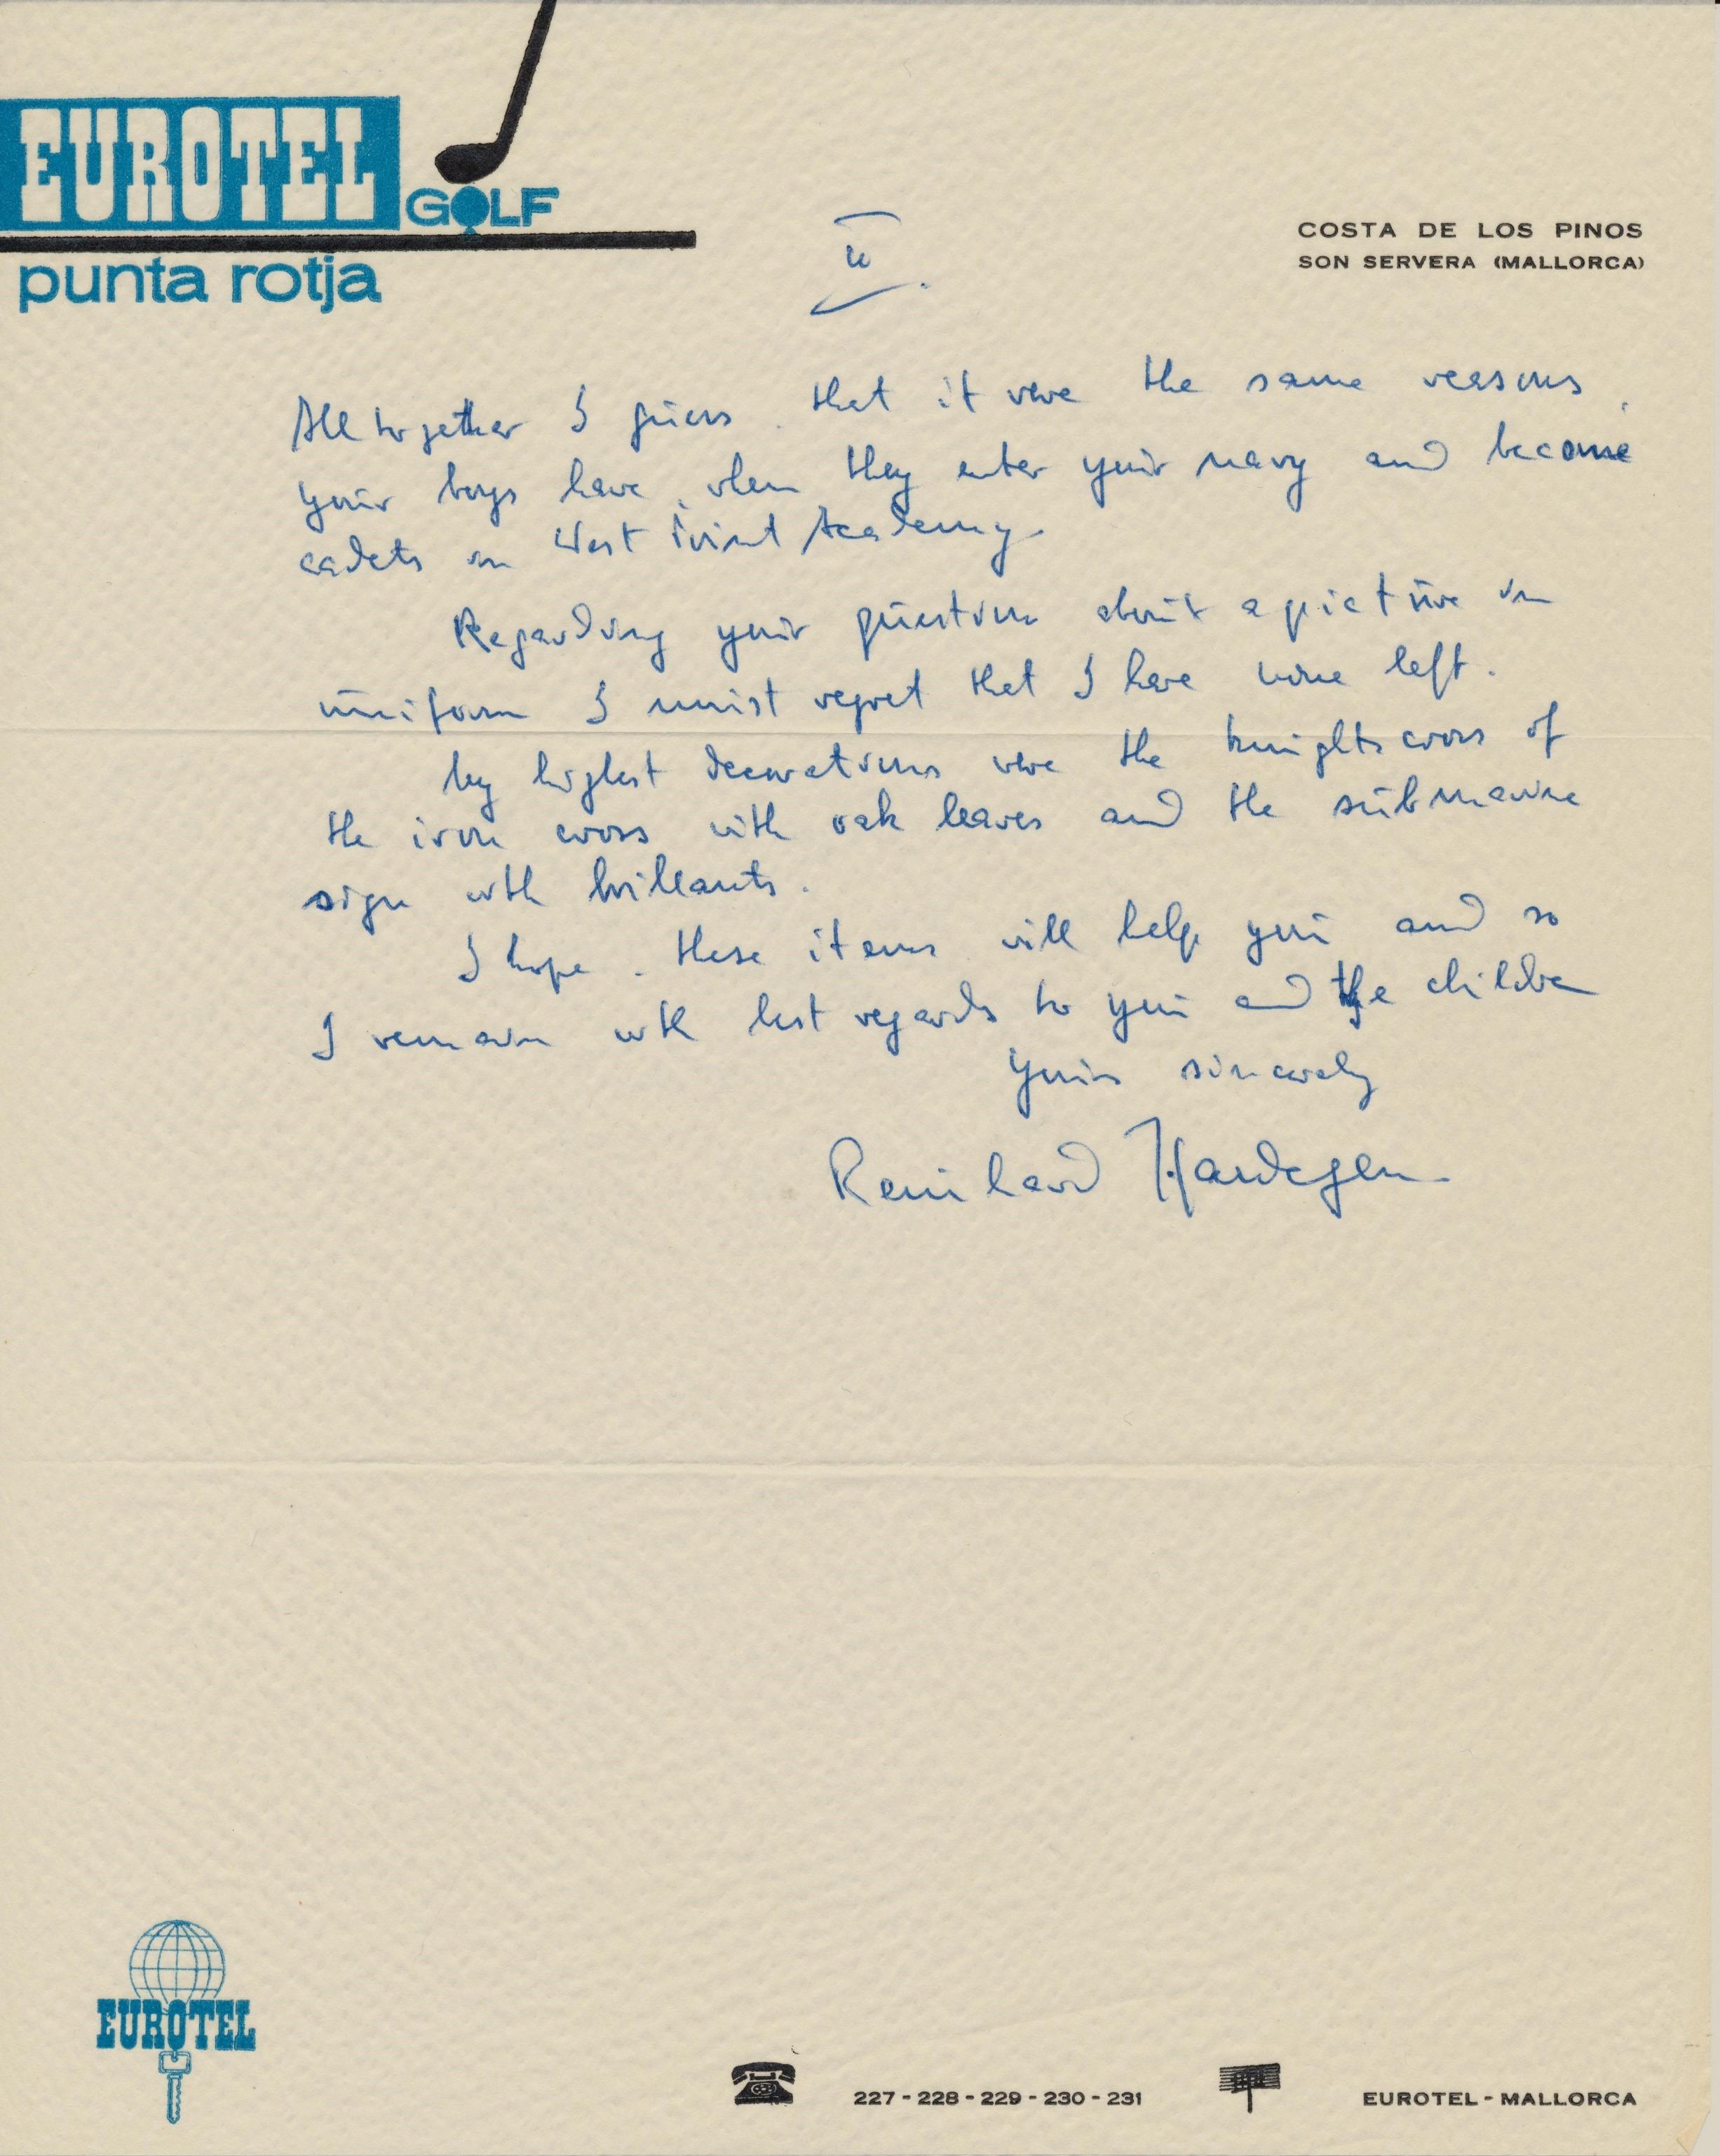 EUROTEL GOLF
punta rotja
COSTA DE LOS PINOS
SON SERVERA (MALLORCA)
II
Alltogether I guess, that it were the same reasons,
your boys have, when they enter your navy and become
cadets in West Point Academy.
Regarding your question about a picture in
uniform I must regret that I have none left.
My highest decorations were the knightscross of
the iron cross with oak leaves and the submarine
sign with brilliants.
I hope, these items will help you and so
I remain with best regards to you and the children
Yours sincerely
Reinhard Hardegen
EUROTEL
227 - 228 - 229 - 230 - 231
EUROTEL - MALLORCA